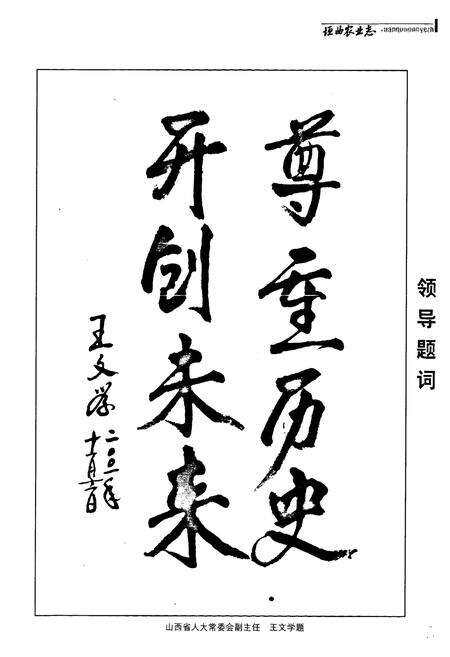 垣曲农业志
领导题词
尊重历史
开创未来
王文学
二〇〇一年
山西省人大常委会副主任 王文学题